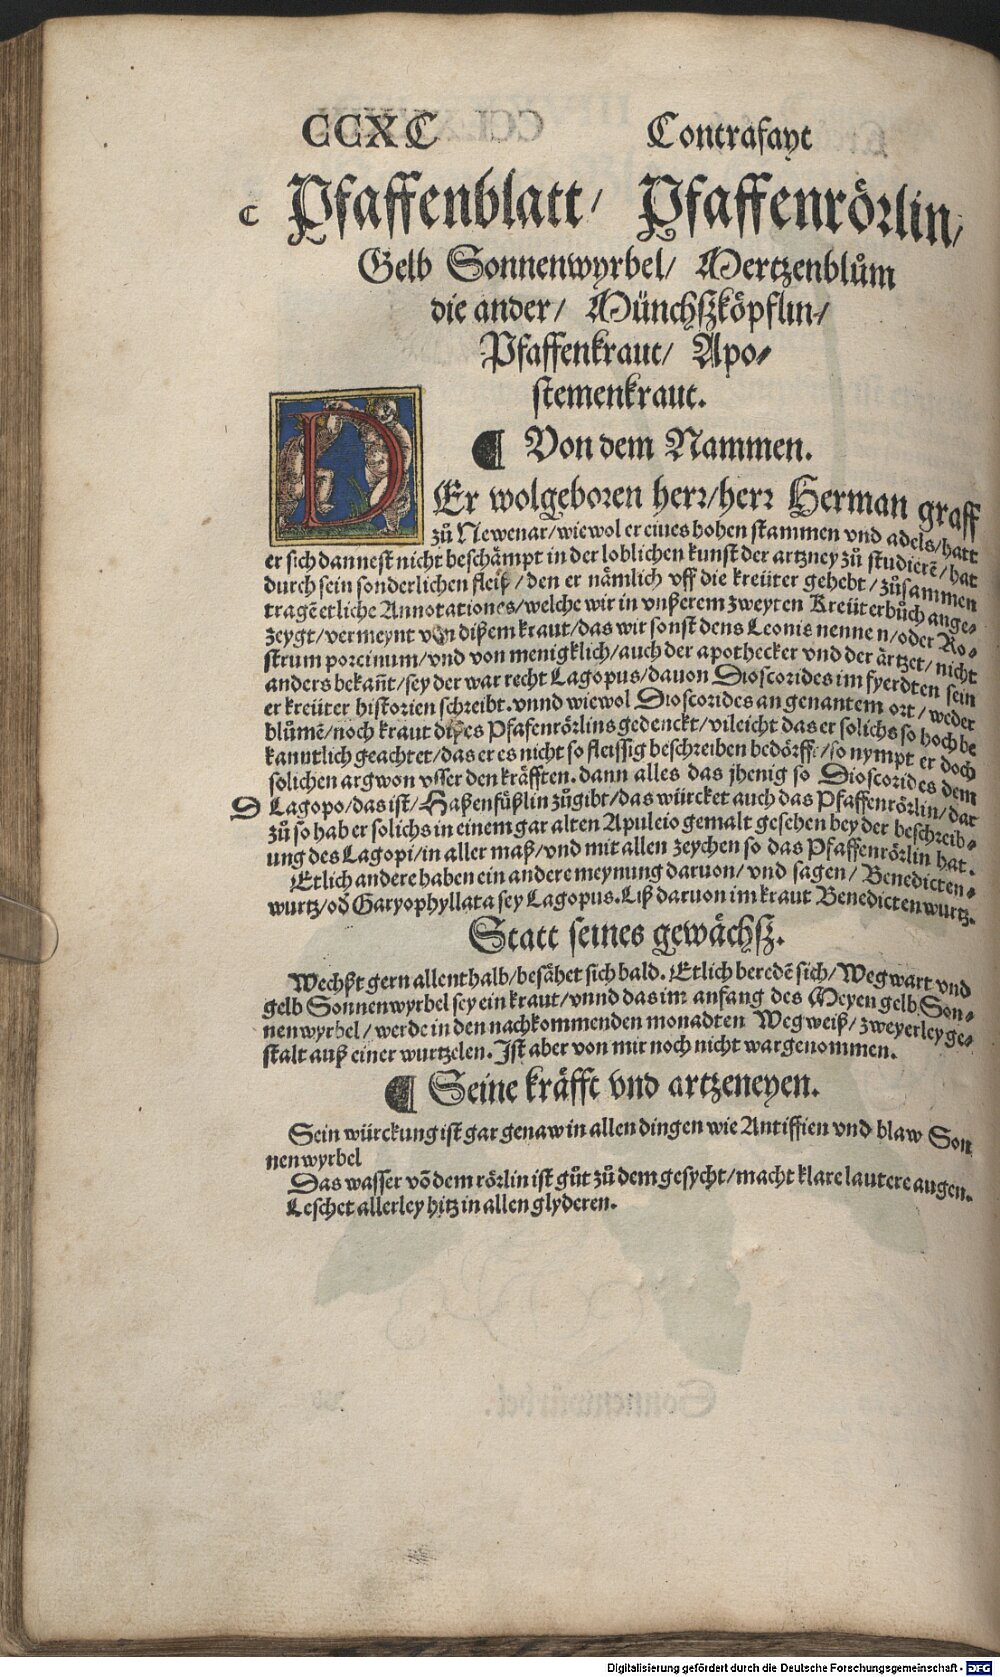 CCXC Contrafayt
C Pfaffenblatt/ Pfaffenrörlin/
Gelb Sonnenwyrbel/ Mertzenblům
die ander/ Münchßköpflin/
Pfaffenkraut/ Apo⸗
stemenkraut.
¶ Von dem Nammen.
DEr wolgeboren herr/herr Herman graff
zů Newenar/wiewol er eines hohen stammen vnd adels/hatt
er sich dannest nicht beschämpt in der loblichen kunst der artzney zů studierē/hat
durch sein sonderlichen fleiß/den er nämlich vff die kreüter gehebt/zůsammen
tragē etliche Annotationes/welche wir in vnßerem zweyten Kreüterbůch ange⸗
zeygt/vermeynt von dißem kraut/das wir sonst dens Leonis nennen/oder Ro⸗
strum porcinum/vnd von menigklich/auch der apothecker vnd der ärtzet/nicht
anders bekañt/sey der war recht Lagopus/dauon Dioscorides im fyerdten sein
er kreüter historien schreibt. vnnd wiewol Dioscorides an genantem ort/weder
blůmē/noch kraut dißes Pfafenrörlins gedenckt/vileicht das er solichs so hoch be
kanntlich geachtet/das er es nicht so fleissig beschreiben bedörffe/so nympt er doch
solichen argwon vsser den kräfften. dann alles das jhenig so Dioscorides dem
D Lagopo/das ist/Haßenfüßlin zůgibt/das würcket auch das Pfaffenrörlin/dar
zů so hab er solichs in einem gar alten Apuleio gemalt gesehen bey der beschreib⸗
ung des Lagopi/in aller maß/vnd mit allen zeychen so das Pfaffenrörlin hat.
Etlich andere haben ein andere meynung daruon/vnd sagen/Benedicten⸗
wurtz/od Garyophyllata sey Lagopus. Liß daruon im kraut Benedictenwurtz.
Statt seines gewächsz.
Wechßt gern allenthalb/besähet sich bald. Etlich beredē sich/Wegwart vnd
gelb Sonnenwyrbel sey ein kraut/vnnd das im anfang des Meyen gelb Son⸗
nenwyrbel/werde in den nachkommenden monadten Wegweiß/zweyerley ge⸗
stalt auß einer wurtzelen. Ist aber von mir noch nicht wargenommen.
¶ Seine kräfft vnd artzeneyen.
Sein würckung ist gar genaw in allen dingen wie Antiffien vnd blaw Son
nenwyrbel
Das wasser vō dem rörlin ist gůt zů dem gesycht/macht klare lautere augen.
Leschet allerley hitz in allen glyderen.
Digitalisierung gefördert durch die Deutsche Forschungsgemeinschaft - DFG